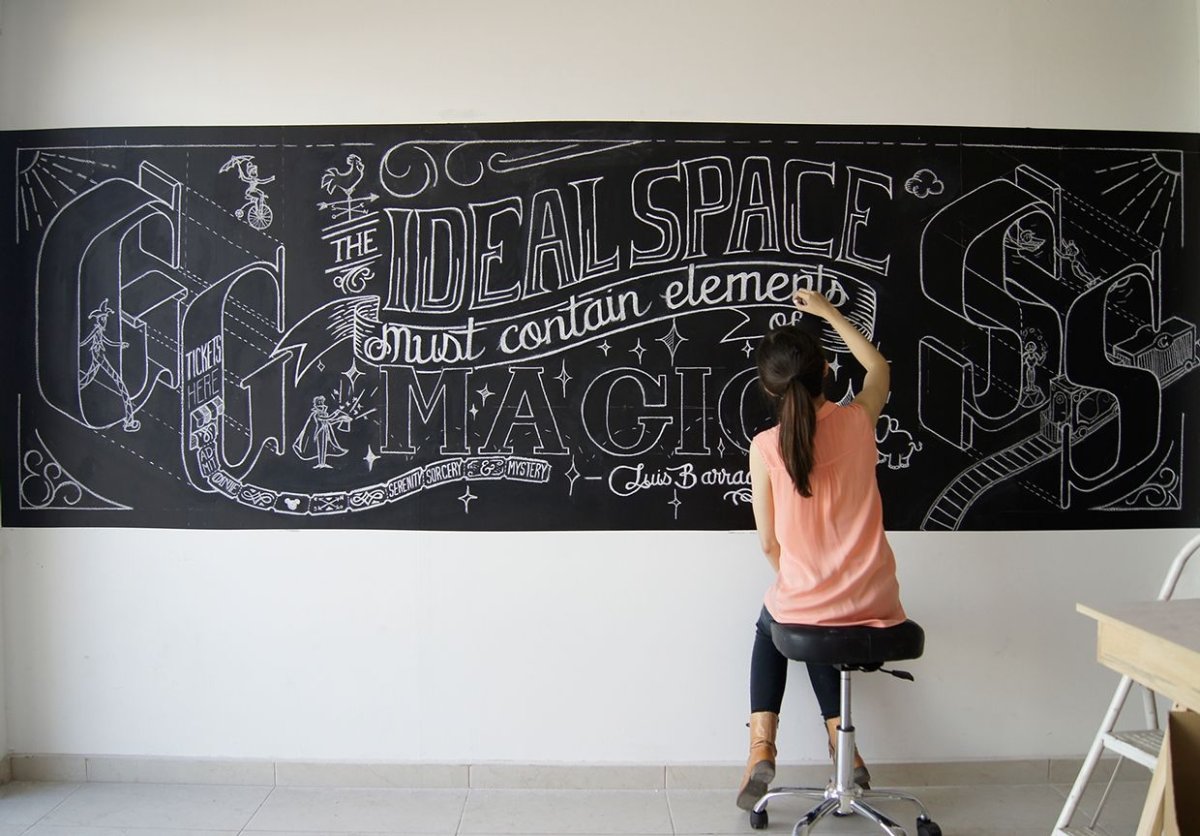 THE
IDEAL SPACE
must contain elements
of
MAGIC
— Luis Barra
TICKETS
HERE
AD
MIT
SERENITY SORCERY & MYSTERY